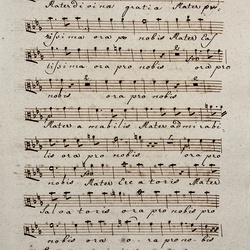 Mater divina gratia Mater pu,
rissima ora pro nobis Mater Cas
tissima ora pro nobis ora pro
nobis ora pro nobis
Mater a mabilis Mater admirabi,
lis ora pro nobis ora pro
nobis Mater Cre a toris Mater
Sal va toris ora pro nobis pro
nobis ora no - ra pro no bis